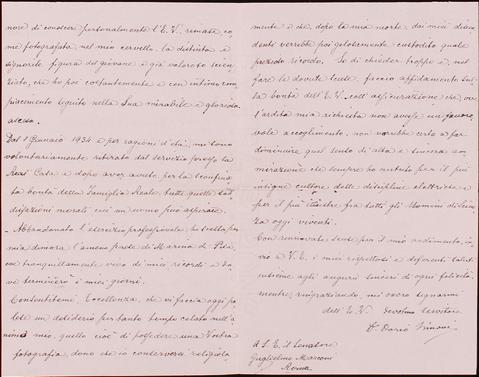 nore di conoscer personalmente l'E. V., rimase, co=
me fotografata, nel mio cervello la distinta e
signorile figura del giovane e già valoroso scien=
ziato, che ho poi costantemente e con intimo com=
piacimento seguito nella Sua mirabile e gloriosa
ascesa.
Dal 1 Gennaio 1934 e per ragioni d'età, mi sono
volontariamente ritirato dal servizio presso la
Real Casa e dopo aver avuto per la
bontà della Famiglia Reale, tutte quelle sod=
disfazioni morali cui un uomo può aspirare.
Abbandonato l'esercizio professionale, ho scelto per
mia dimora l'ameno paese di Marina di Pisa,
ove tranquillamente vivo di miei ricordi e do=
ve terminerò i miei giorni.
Consentitemi, Eccellenza, che vi faccia oggi pa=
lese un desiderio per tanto tempo celato nell'a=
nimo mio, quello cioè di possedere una Vostra
fotografia, dono che io conserverei religiosa=
mente e che, dopo la mia morte, dai miei discen=
denti verrebbe poi gelosamente custodito quale
prezioso ricordo. So di chieder troppo e nel
fare le dovute scuse, faccio affidamento sul=
la bontà dell'E. V. coll'assicurazione che, ove
l'ardita mia richiesta non avesse un favore=
vole accoglimento, non varrebbe certo a far
diminuire quel senso di alta e sincera am=
mirazione che sempre ho nutrito per il più
insigne cultore delle discipline elettriche e
per il più illustre fra tutti gli Uomini di Scien=
za oggi viventi.
Con rinnovate scuse per il mio ardimento, in=
vio a V. E. i miei rispettosi e deferenti saluti
auguri sinceri di ogni felicità,
mentre, ringraziando, mi onoro segnarmi
dell'E. V. devotmo servitore
Dario
a S. E. il Senatore
Guglielmo Marconi
Roma